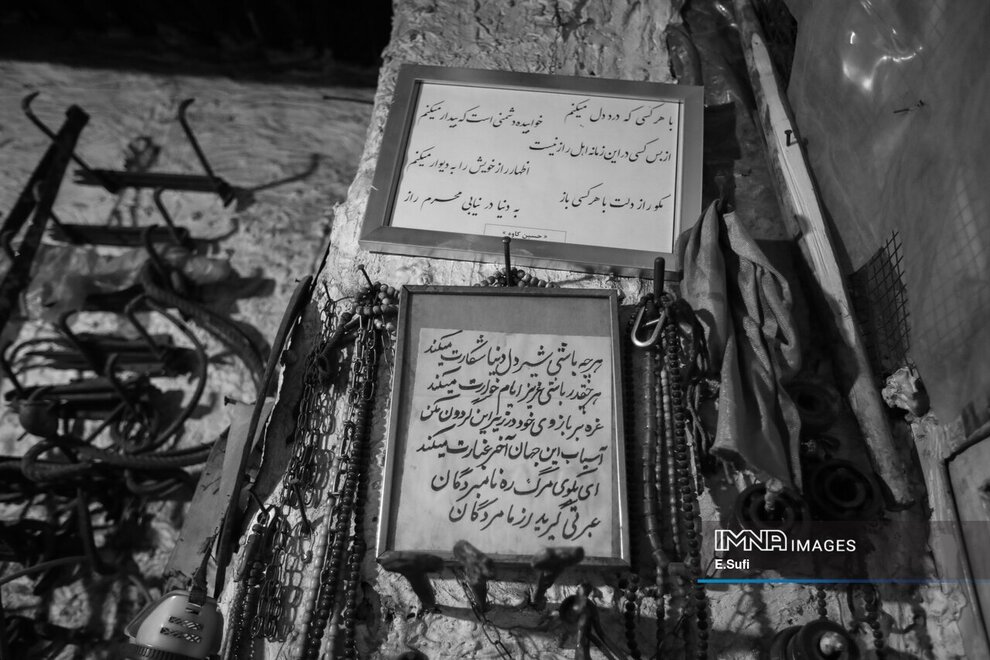 با هر کسی که درد دل میکنم
خوابیده دشمنی است که بیدار میکنم
از بس کسی در این زمانه اهل راز نیست
اظهار راز خویش را به دیوار میکنم
مکو راز دلت با هر کسی باز
به دنیا در نیابی محرم راز
« حسین کاوه »
هر چه باشی شیر دل دنیا شکارت میکند
هر چقدر باشی عزیز ایام خوارت میکند
غره مبر بازوی خود در زیر این گردون مکن
آسیاب این جهان آخر غبارت میکند
ای بکوی مرگ ره نامبردگان
عبرتی گیرید از ما مردگان
IMNA IMAGES
E.Sufi